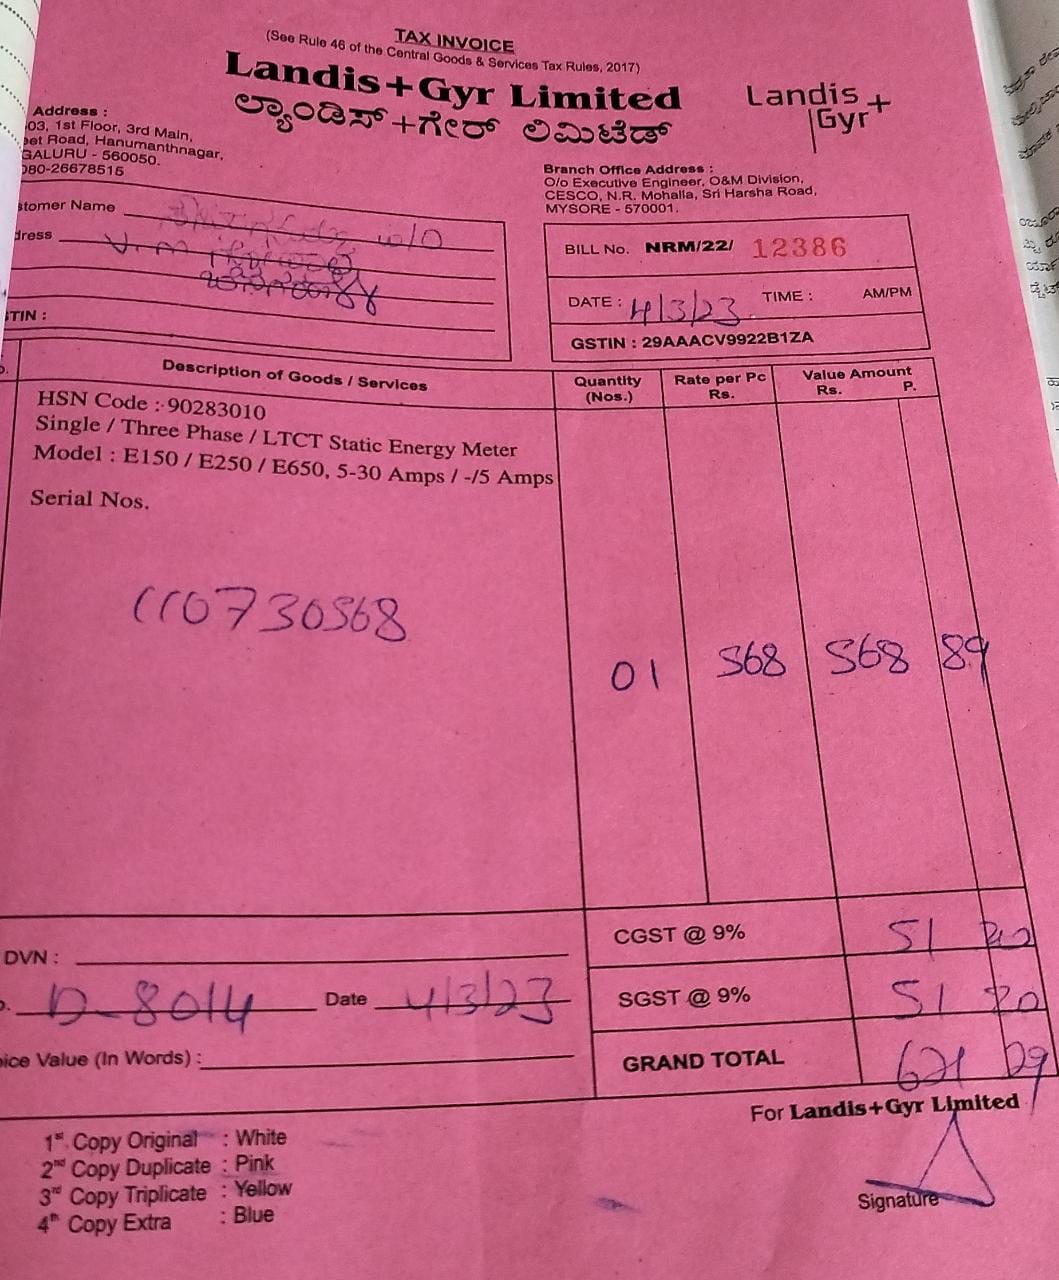 TAX INVOICE
(See Rule 46 of the Central Goods & Services Tax Rules, 2017)
Landis+Gyr Limited
ಲ್ಯಾಂಡಿಸ್+ಗೇರ್ ಲಿಮಿಟೆಡ್
Landis+
Gyr
Address :
03, 1st Floor, 3rd Main,
eet Road, Hanumanthnagar,
GALURU - 560050.
080-26678515
Branch Office Address :
O/o Executive Engineer, O&M Division,
CESCO, N.R. Mohalla, Sri Harsha Road,
MYSORE - 570001.
stomer Name
dress
w/o
V.M
TIN :
BILL No. NRM/22/ 12386
DATE : 4/3/23 TIME : AM/PM
GSTIN : 29AAACV9922B1ZA
Description of Goods / Services Quantity (Nos.) Rate per Pc Rs. Value Amount Rs. P.
HSN Code : 90283010
Single / Three Phase / LTCT Static Energy Meter
Model : E150 / E250 / E650, 5-30 Amps / -/5 Amps
Serial Nos.
110730568
01 568 568 89
CGST @ 9% 51 20
DVN :
SGST @ 9% 51 20
D-8014 Date 4/3/23
oice Value (In Words) :
GRAND TOTAL 671 29
For Landis+Gyr Limited
1st Copy Original : White
2nd Copy Duplicate : Pink
3rd Copy Triplicate : Yellow
4th Copy Extra : Blue
Signature